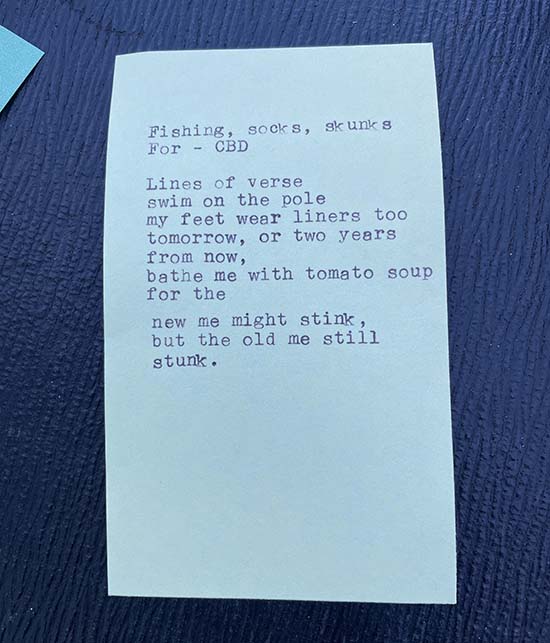 Fishing, socks, skunks
For - CBD
Lines of verse
swim on the pole
my feet wear liners too
tomorrow, or two years
from now,
bathe me with tomato soup
for the
new me might stink,
but the old me still
stunk.